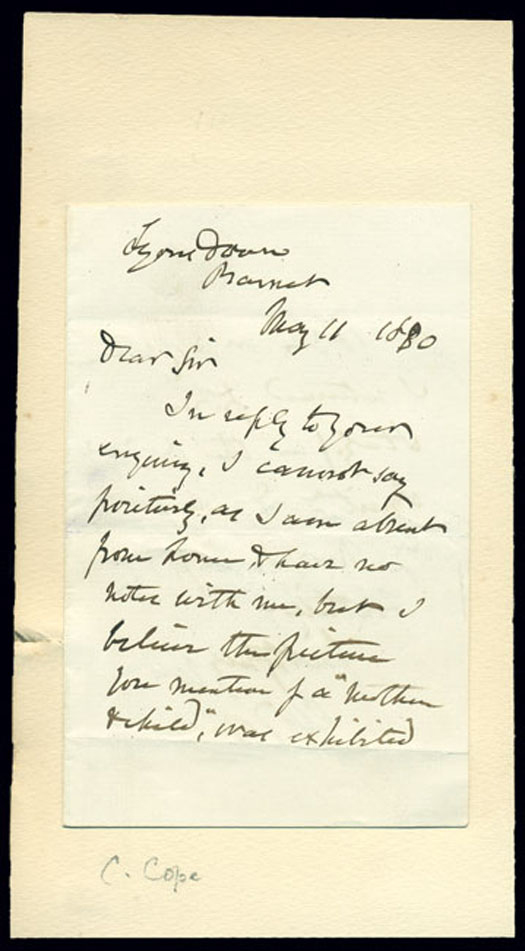 Lyonsdown
Barnet
May 11 1880
Dear Sir
In reply to your
enquiry, I cannot say
positively, as I am absent
from home, & have no
notes with me, but I
believe the picture
you mention of a "Mother
& child", was exhibited
C. Cope